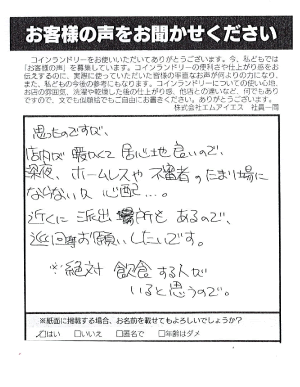 お客様の声をお聞かせください
コインランドリーをお使いいただいてありがとうございます。今、私どもでは
「お客様の声」を募集しています。コインランドリーの便利さや仕上がり感をお
伝えするのに、実際に使っていただいた皆様の率直なお声が何よりの力になり、
また、私どもの今後の参考にもなります。コインランドリーについての使い心地、
お店の雰囲気、洗濯や乾燥した後の仕上がり感、他店との違いなど、何でもあり
ですので、文でも似顔絵でもご自由にお書きください。ありがとうございます。
株式会社エムアイエス 社員一同
思ったのですが、
店内が暖かくて居心地良いので、
深夜、ホームレスや不審者のたまり場に
ならないか心配…。
近くに派出場所もあるので、
巡回等お願いしたいです。
※絶対飲食する人が
いると思うので。
※紙面に掲載する場合、お名前を載せてもよろしいでしょうか？
☑はい □いいえ □匿名で □年齢はダメ